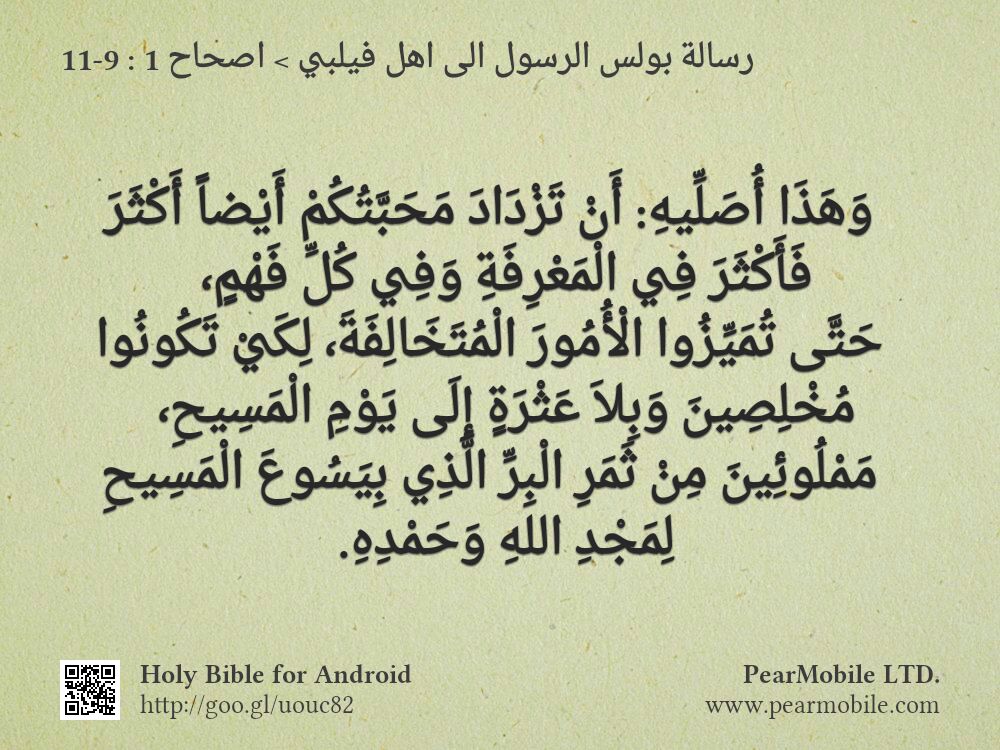 رسالة بولس الرسول الى اهل فيلبي > اصحاح 1 : 9-11
وَهَذَا أُصَلِّيهِ: أَنْ تَزْدَادَ مَحَبَّتُكُمْ أَيْضاً أَكْثَرَ
فَأَكْثَرَ فِي الْمَعْرِفَةِ وَفِي كُلِّ فَهْمٍ،
حَتَّى تُمَيِّزُوا الْأُمُورَ الْمُتَخَالِفَةَ، لِكَيْ تَكُونُوا
مُخْلِصِينَ وَبِلاَ عَثْرَةٍ إِلَى يَوْمِ الْمَسِيحِ،
مَمْلُوئِينَ مِنْ ثَمَرِ الْبِرِّ الَّذِي بِيَسُوعَ الْمَسِيحِ
لِمَجْدِ اللهِ وَحَمْدِهِ.
Holy Bible for Android
http://goo.gl/uouc82
PearMobile LTD.
www.pearmobile.com